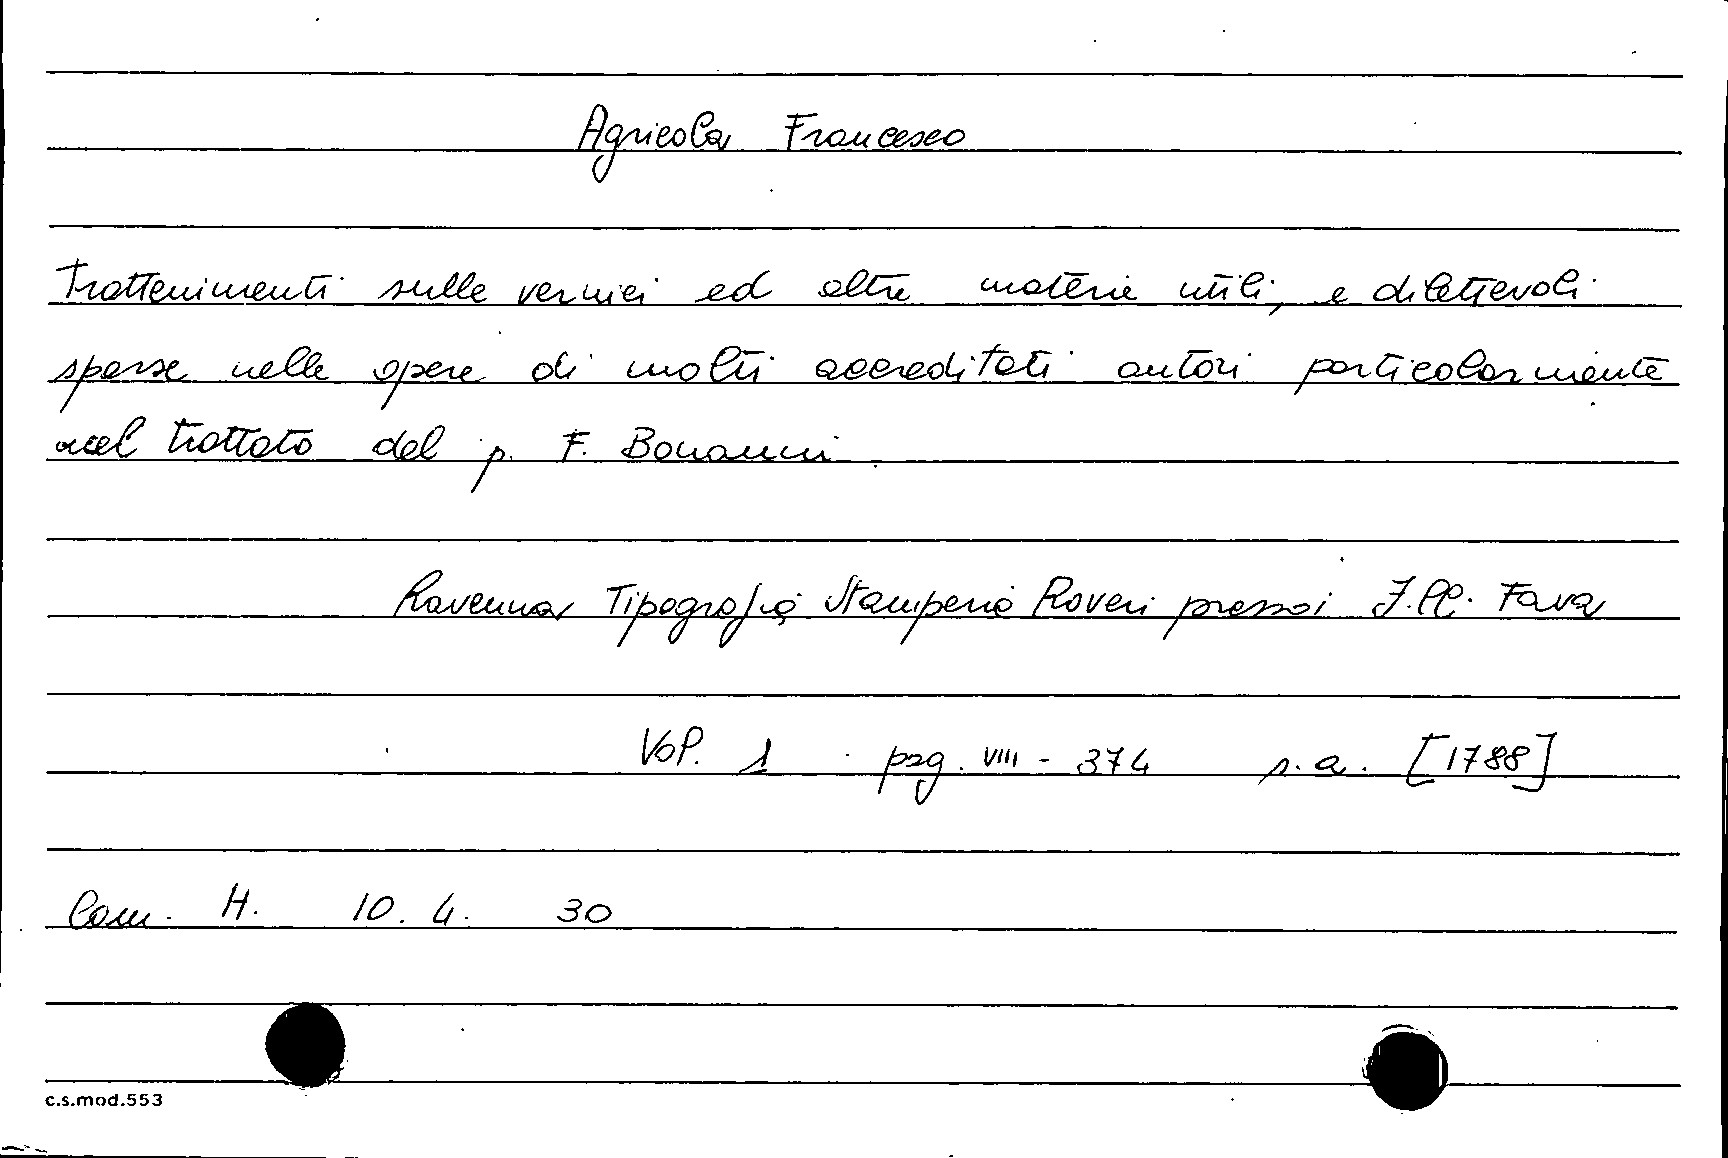 Agricola Francesco
Trattenimenti sulle vernici ed altre materie utili, e dilettevoli
sparse nelle opere di molti accreditati autori particolarmente
nel trattato del p. F. Bonanni.
Ravenna Tipografia Stamperia Roveri presso i Fava
Vol. 1 pag. VIII - 374 s.a. [1788]
Com. H. 10. 4. 30
c.s.mod.553